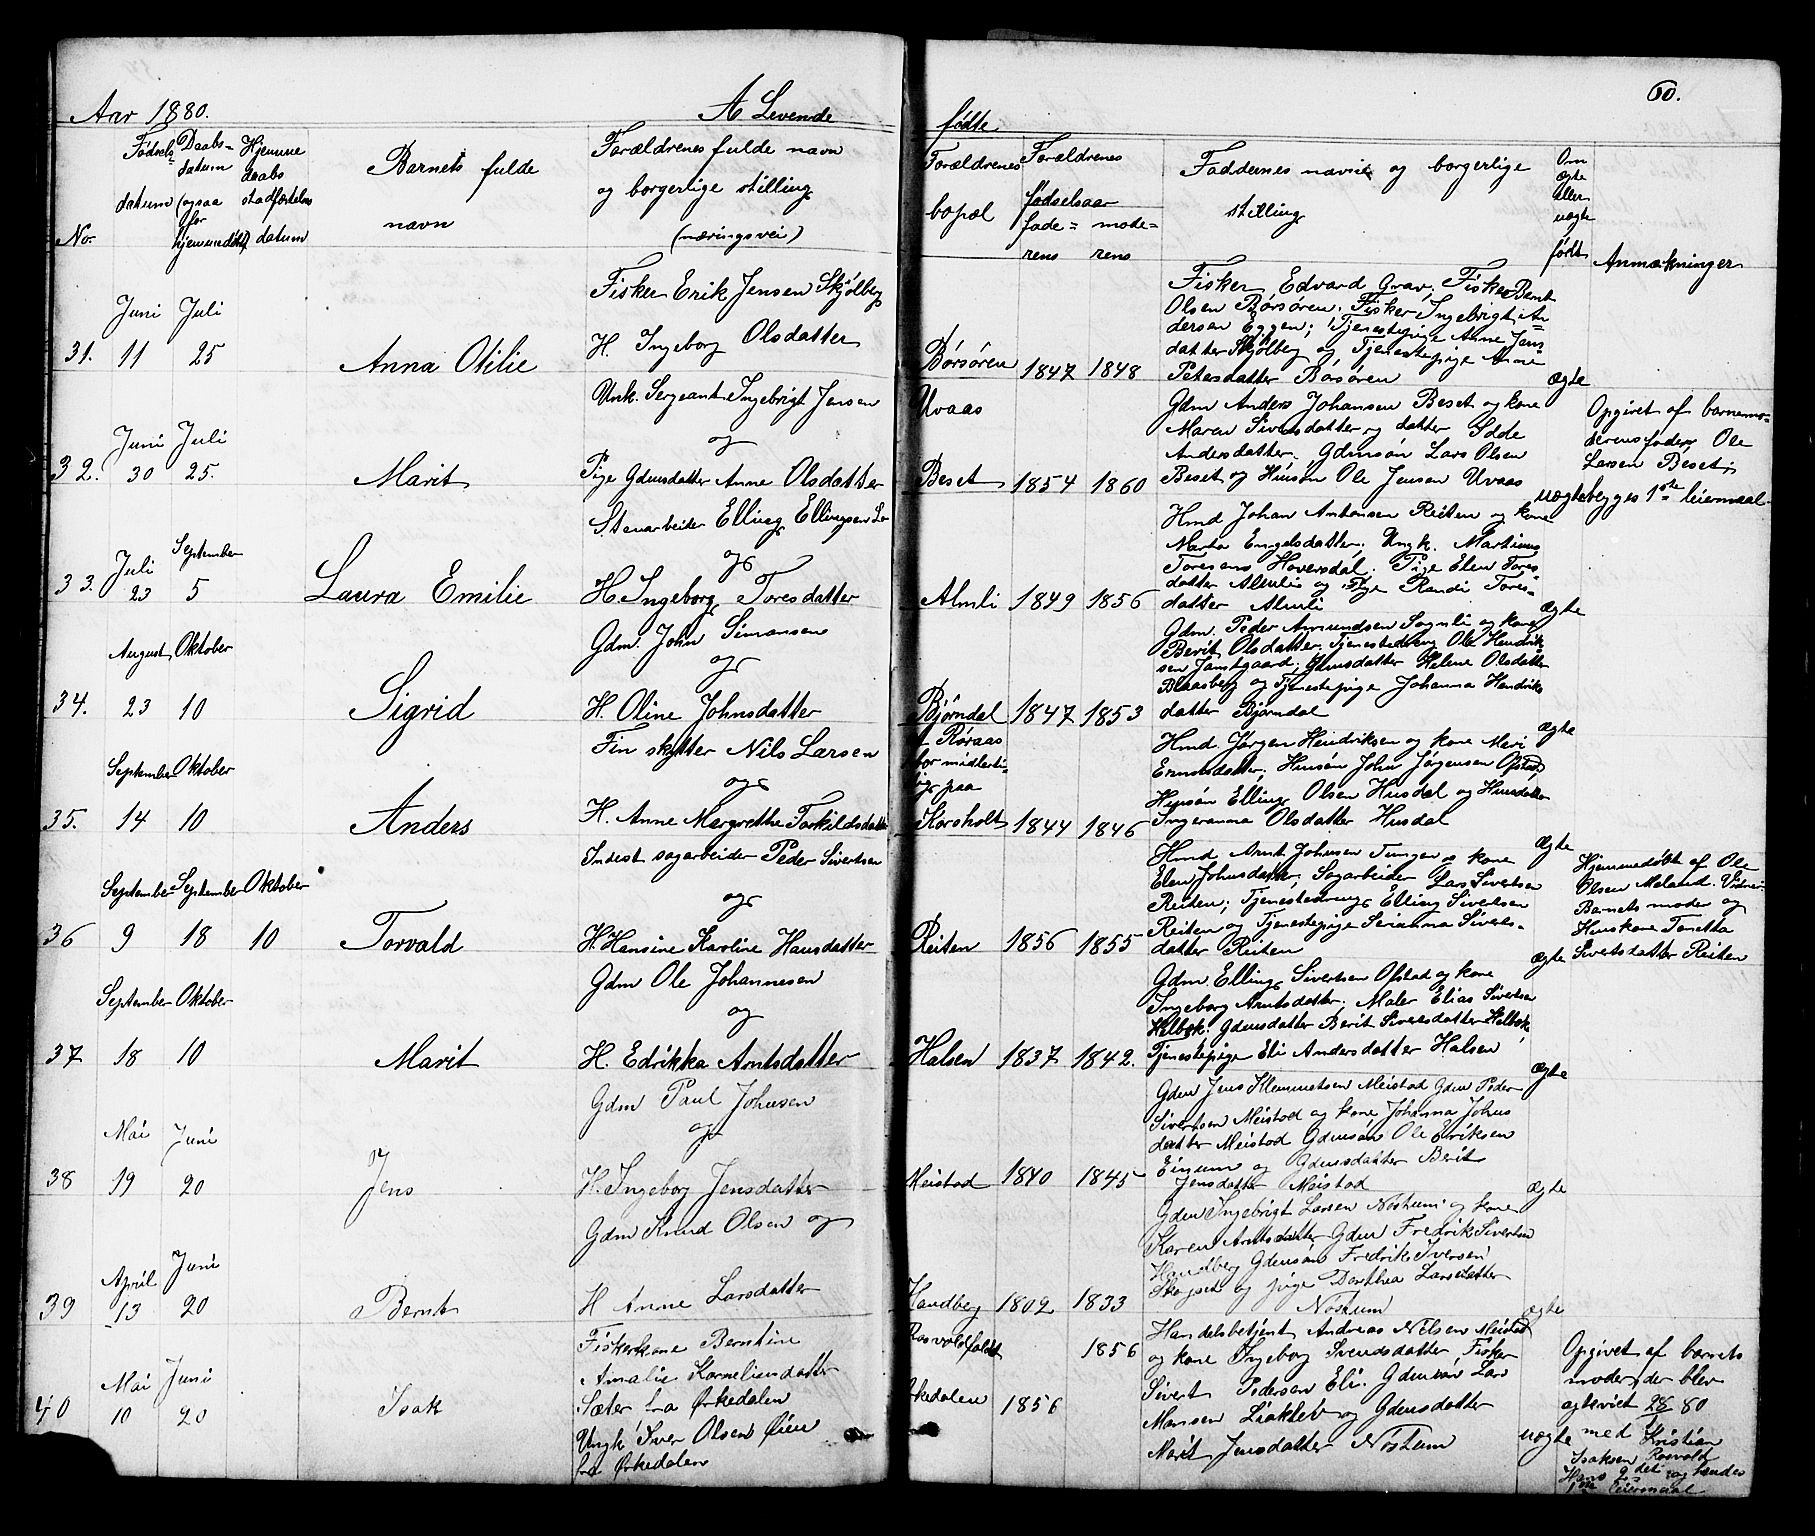 Aar 1880.
A Levende
født&e
60.
No.
Fødsels-
datum
Daabs-
datum
(ogsaa
for
hjemmedøbt)
Hjemme
daabs
stadfæstelses
datum
Barnets fulde
navn
Forældrenes fulde navn
og borgerlige stilling
(næringsvei)
Forældrenes
bopæl
Forældrenes
fødselsaar
fade= mode=
rens rens
Faddernes navne og borgerlige
stilling
Om
ægte
eller
uægte
født
Anmærkninger
31.
Juni Juli
11 25
Anna Otilie
Fisker Erik Jensen Skjølberg
H. Ingeborg Olsdatter
Børsøren 1847 1848
Fisker Edvard Grav, Fisker Bernt
Olsen Børsøren. Fisker Ingebrigt An=
dersen Eggen; Tjenestepige Anne Jens
datter Skjølberg og Tjenestepige Anne
Petersdatter Børsøren
ægte
32.
Juni Juli
30 25.
Marit
Unk. Sergeant Ingebrigt Jensen
og
Pige Gdmsdatter Anne Olsdatter
Uvaas
Beset 1854 1860
Gdm Anders Johansen Beset og kone
Maren Siversdatter og datter Golde
Andersdatter. Gdmsøn Lars Olsen
Beset og Husmsøn Ole Jensen Uvaas
uægte
Opgivet af barnemo-
derens fader Ole
Larsen Beset;
begges 1ste leiermaal.
33.
Juli September
23 5
Laura Emilie
Stenarbeider Elling Ellingsen
og
H Ingeborg Toresdatter
Almli 1849 1856
Hmd Johan Antonsen Reiten og kone
Marta Engelsdatter; Ungk. Martinus
Toresens Hoversdal. Pige Elen Tores
datter Almli og Pige Randi Tores-
datter Almli
ægte
34.
August Oktober
23 10
Sigrid
Gdm. John Simonsen
og
H. Oline Johnsdatter
Bjørndal 1847 1853
Gdm. Peder Amundsen Sognli og kone
Berit Olsdatter. Tjenestedreng Ole Hendrik
sen Jamtgaard; Gdmsdatter Helene Olsdatter
Blaasberg og Tjenestepige Johanna Hendriks
datter Bjørndal
ægte
35.
September Oktober
14 10
Anders
Fin skytter Nils Larsen
og
H. Anne Margrethe Torkildsdatter
Røraas
bor midlerti-
dig paa
Korsholt 1844 1846
Hmd Jørgen Hendriksen og kone Meri
Ernstsdatter; Husmsøn John Jørgensen Ofstad,
Husmsøn Elling Olsen Husdal og Husmdatter
Ingeranna Olsdatter Husdal
ægte
36
September September Oktober
9 18 10
Torvald
Inderst sagarbeider Peder Sivertsen
og
H. Hansine Karoline Hansdatter
Reiten 1856 1855
Hmd Arnt Johnsen Tungen og kone
Elen Johnsdatter; Sagarbeider Lars Sivertsen
Reiten; Tjenestedreng Elling Sivertsen
Reiten og Tjenestepige Serianna Siverts-
datter Reiten
ægte
Hjemmedøbt af Ole
Olsen Meland. Vidner
Barnets moder og
Huskone Tonetta
Sivertsdatter Reiten
37
September Oktober
18 10
Marit
Gdm Ole Johannesen
og
H. Edrikka Arntsdatter
Halsen 1837 1842.
Gdm. Elling Sivertsen Ofstad og kone
Ingeborg Arntsdatter. Maler Elias Sivertsen
Holbek. Gdmsdatter Berit Sivertsdatter Holbek,
Tjenestepige Eli Andersdatter Halsen
ægte
38
Mai Juni
19 20
Jens
Gdm Paul Johnsen
og
H. Ingeborg Jensdatter
Meistad 1840 1845
Gdm Jens Klemmetsen Meistad Gdm Peder
Sivertsen Meistad og kone Johanna Johns
datter Meistad Gdmsøn Ole Eriksen
Einum og Gdmsdatter Berit
Jensdatter Meistad
ægte
39
April Juni
13 20
Bernt
Gdm Knud Olsen og
H Anne Larsdatter
Handberg 1802 1833
Gdm Ingebrigt Larsen Nøstum og kone
Karen Arntsdatter Gdm Fredrik Sivertsen
Handberg Gdmsøn Fredrik Iversen
Skogset og pige Dorthea Larsdatter
Nøstum
ægte
40
Mai Juni
10 20
Isak
Fiskerkone Berntine
Amalie Korneliusdatter
Sæter fra Ørkedalen
Ungk Iver Olsen Øien
fra Ørkedalen
Rosvoldsaldt
1856
Ørkedalen 1856
Handelsbetjent Andreas Nilsen Meistad
og kone Ingeborg Svendsdatter Fisker
Sivert Pedersen Eli. Gdmsøn Lars
Monsen Liakleb og Gdmsdatter
Marit Jensdatter Nøstum
uægte
Opgivet af barnets
moder, der blev
ægteviet 28/ 80
med Kristian
Isaksen Rosvold
Hans 2det og hendes
1ste leiermaal